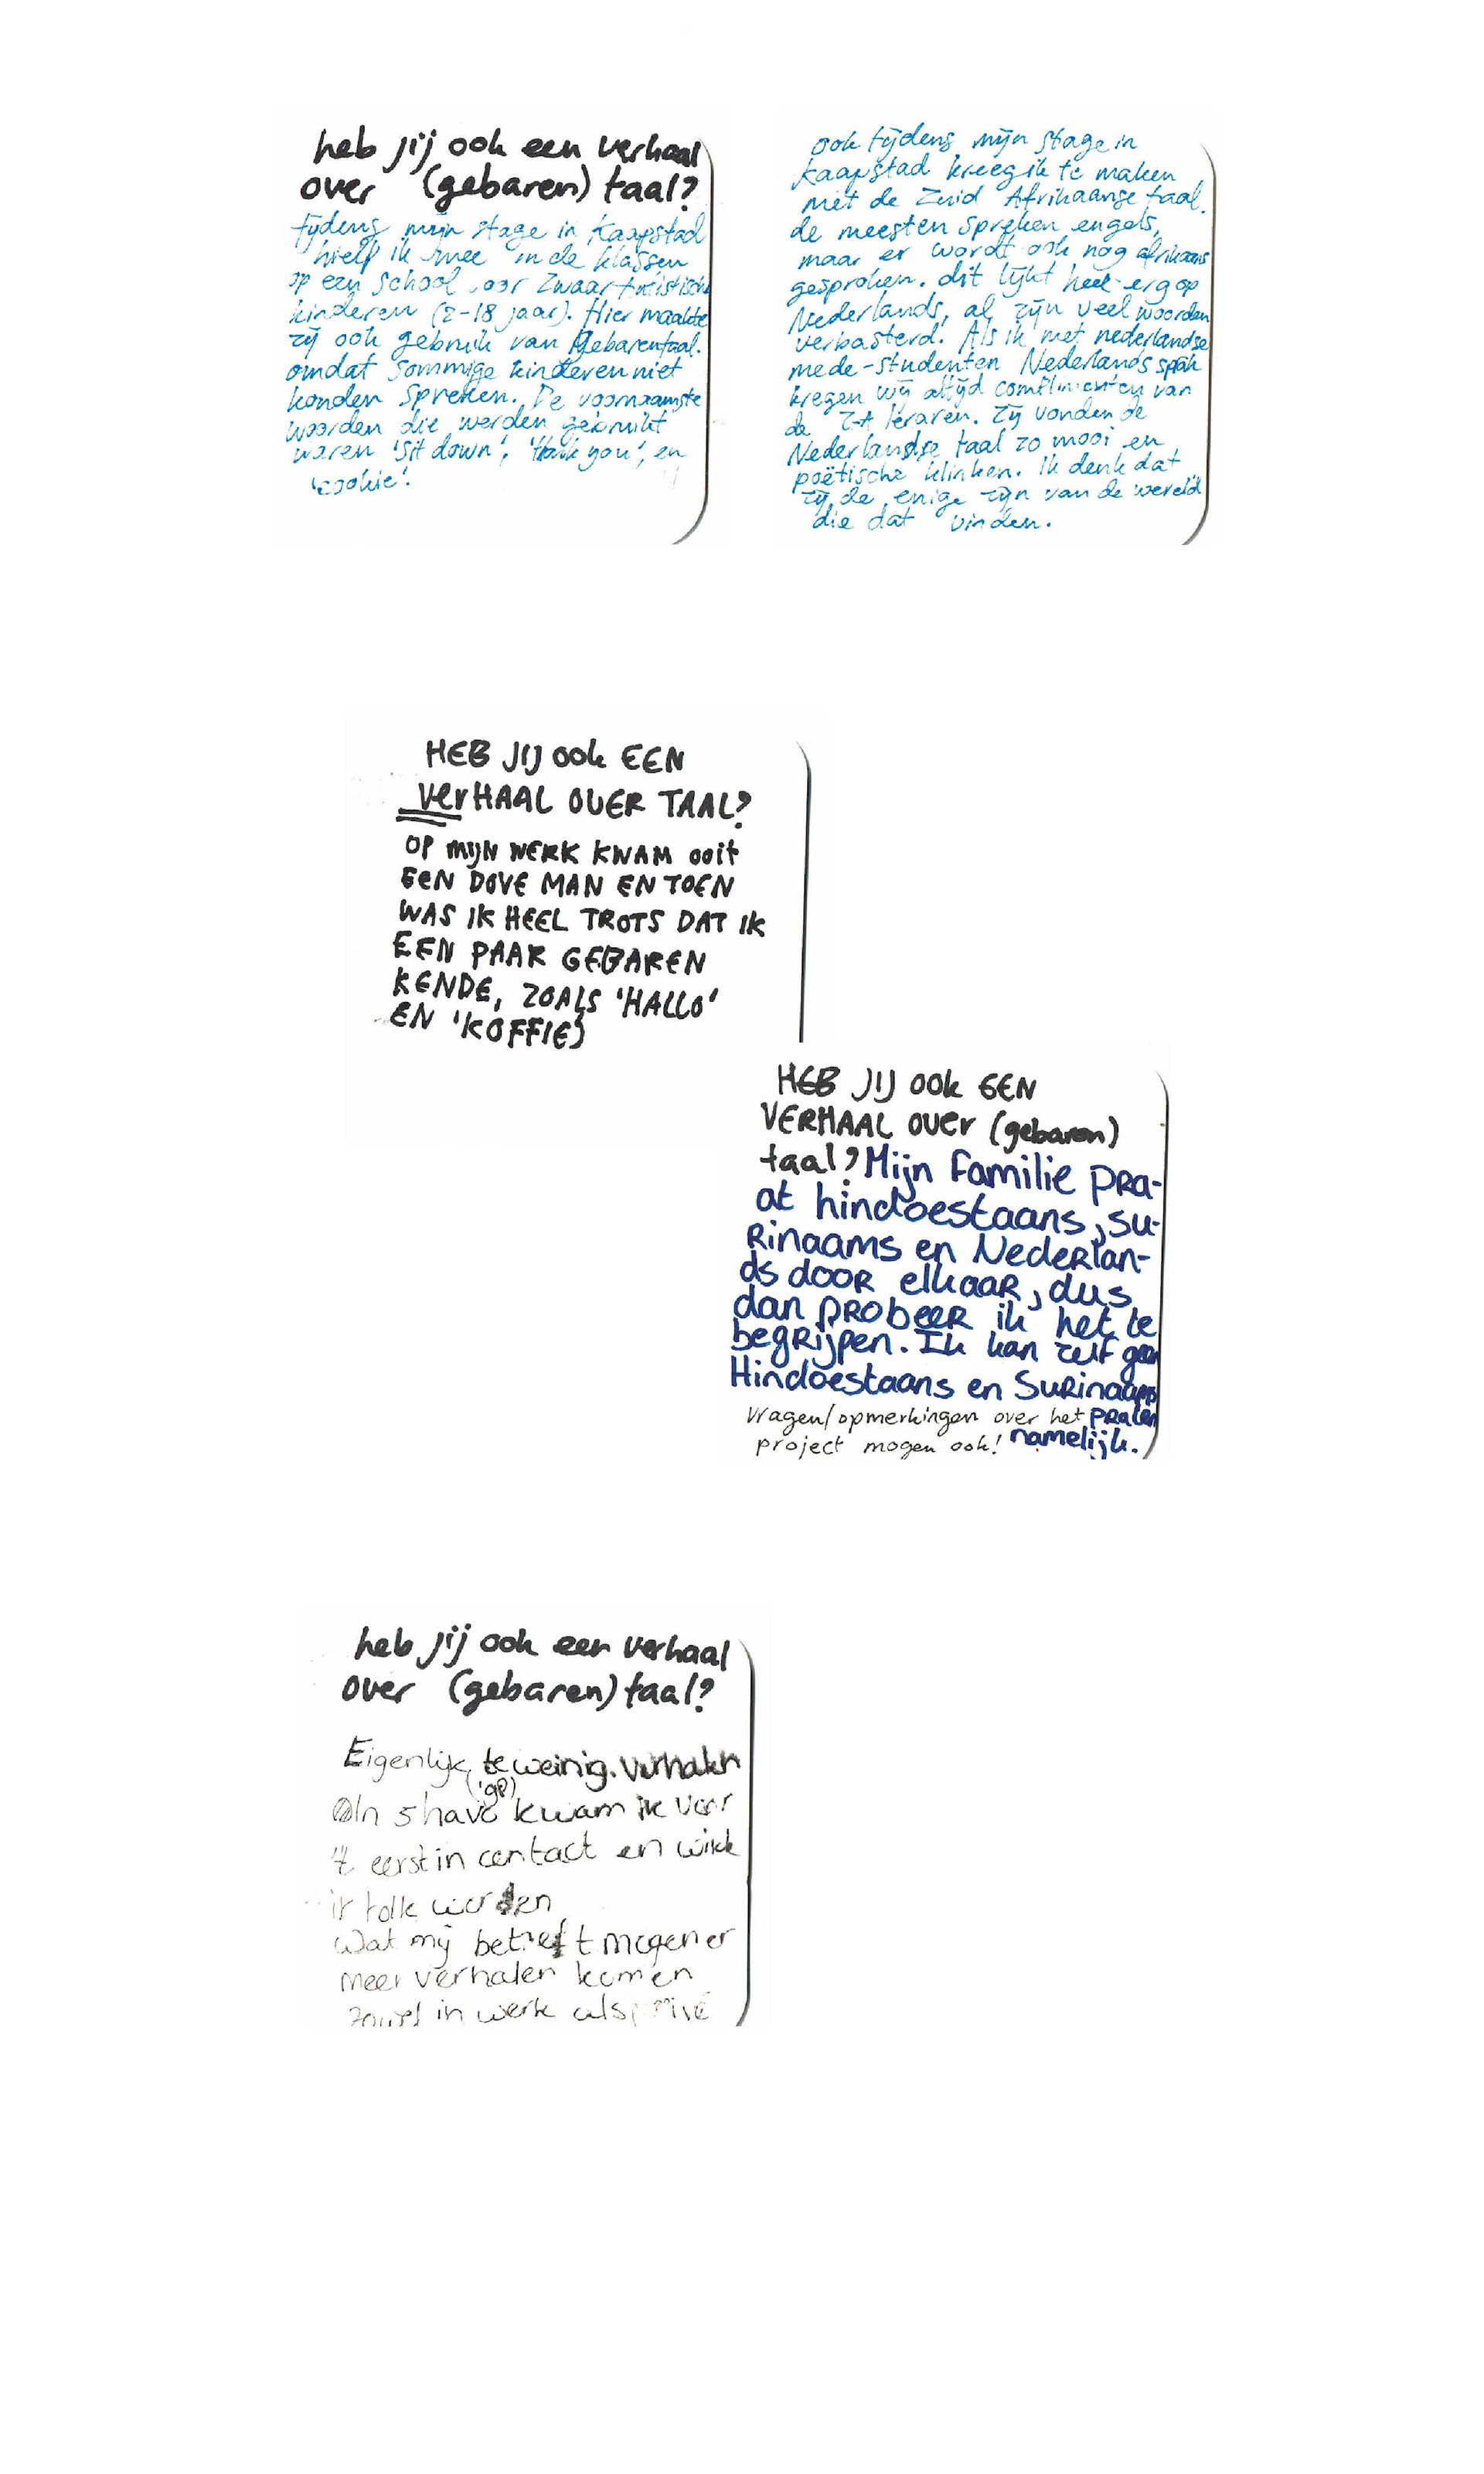 heb jij ook een verhaal
over (gebaren) taal?
tijdens mijn stage in Kaapstad
hielp ik mee in de klassen
op een school voor zwaar autistische
kinderen (2-18 jaar). Hier maakte
zij ook gebruik van gebarentaal.
omdat sommige kinderen niet
konden spreken. De voornaamste
woorden die werden gebruikt
waren 'sit down', 'thank you', en
'cookie'.
ook tijdens mijn stage in
Kaapstad kreeg ik te maken
met de Zuid Afrikaanse taal.
de meesten spreken engels,
maar er wordt ook nog afrikaans
gesproken. dit lijkt heel erg op
Nederlands, al zijn veel woorden
verbasterd. Als ik met nederlandse
mede-studenten Nederlands sprak
kregen wij altijd complimenten van
de Z-A leraren. Zij vonden de
Nederlandse taal zo mooi en
poëtische klinken. Ik denk dat
zij de enige zijn van de wereld
die dat vinden.
HEB JIJ ook EEN
VerHAAL OVER TAAL?
OP MIJN WERK KWAM ooit
EEN DOVE MAN EN TOEN
WAS IK HEEL TROTS DAT IK
EEN PAAR GEBAREN
KENDE, ZOALS 'HALLO'
EN 'KOFFIE'
HEB JIJ ook EEN
VERHAAL over (gebaren)
taal? Mijn familie pra-
at hindoestaans, su-
Rinaams en Nederlan-
ds door elkaar, dus
dan probeer ik het te
begrijpen. Ik kan zelf geen
Hindoestaans en Surinaams
Vragen/opmerkingen over het praten
project mogen ook! namelijk.
heb jij ook een verhaal
over (gebaren) taal?
Eigenlijk te weinig. verhalen
In 5 havo ('98) kwam ik voor
't eerst in contact en wilde
ik tolk worden
Wat mij betreft mogen er
meer verhalen komen
zowel in werk als privé